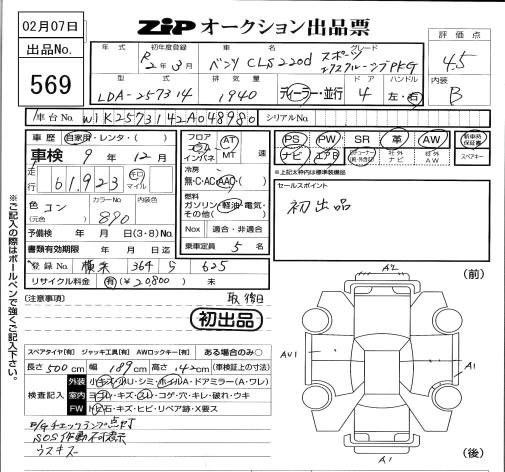 02月07日
出品No.
569
ZIP オークション出品票
年式 初年度登録 車名 グレード
R2年3月 ベンツ CLS220d スポーツ エクスクルーシブPKG
評価点
4.5
内装
B
型式 排気量 ドア ハンドル
LDA-257314 1940 ディーラー・並行 4 左・右
車台No. W1K2573142A048980 シリアルNo.
車歴 自家用・レンタ・( )
車検 9年12月
走行 61,923 キロ マイル
色(元色) コン カラーNo. 890 内装色
予備検 年 月 日(3・8)No.
書類有効期限 年 月 日迄
登録No. 横浜 364 ら 625
リサイクル料金 有(¥20,800) 未
フロア コラム インパネ AT MT 速
冷房
無・C・AC・AAC・( )
燃料
ガソリン・軽油・電気・その他( )
Nox 適合・非適合
乗車定員 5 名
PS PW SR 革 AW 新車時保証書
ナビ エアB 社外ナビ 社外AW スペアキー
※上記太枠内は標準装備品
セールスポイント
初出品
※ご記入の際はボールペンで強くご記入下さい。
(注意事項) 取 後日
初出品
スペアタイヤ[有] ジャッキ工具[有] AWロックキー[有] ある場合のみ○
長さ 500cm 幅 189cm 高さ 142cm (車検証上の寸法)
検査記入
外装 小キズ・小U・シミ・ホイルA・ドアミラー(A・ワレ)
室内 ヨゴレ・キズ・スレ・コゲ・穴・キレ・破れ・ウキ
FW トビ石・キズ・ヒビ・リペア跡・X要ス
E/Gチェックランプ点灯
SOS作動不可表示
ウスキズ
(前)
A2
AU1
A1
A1
(後)